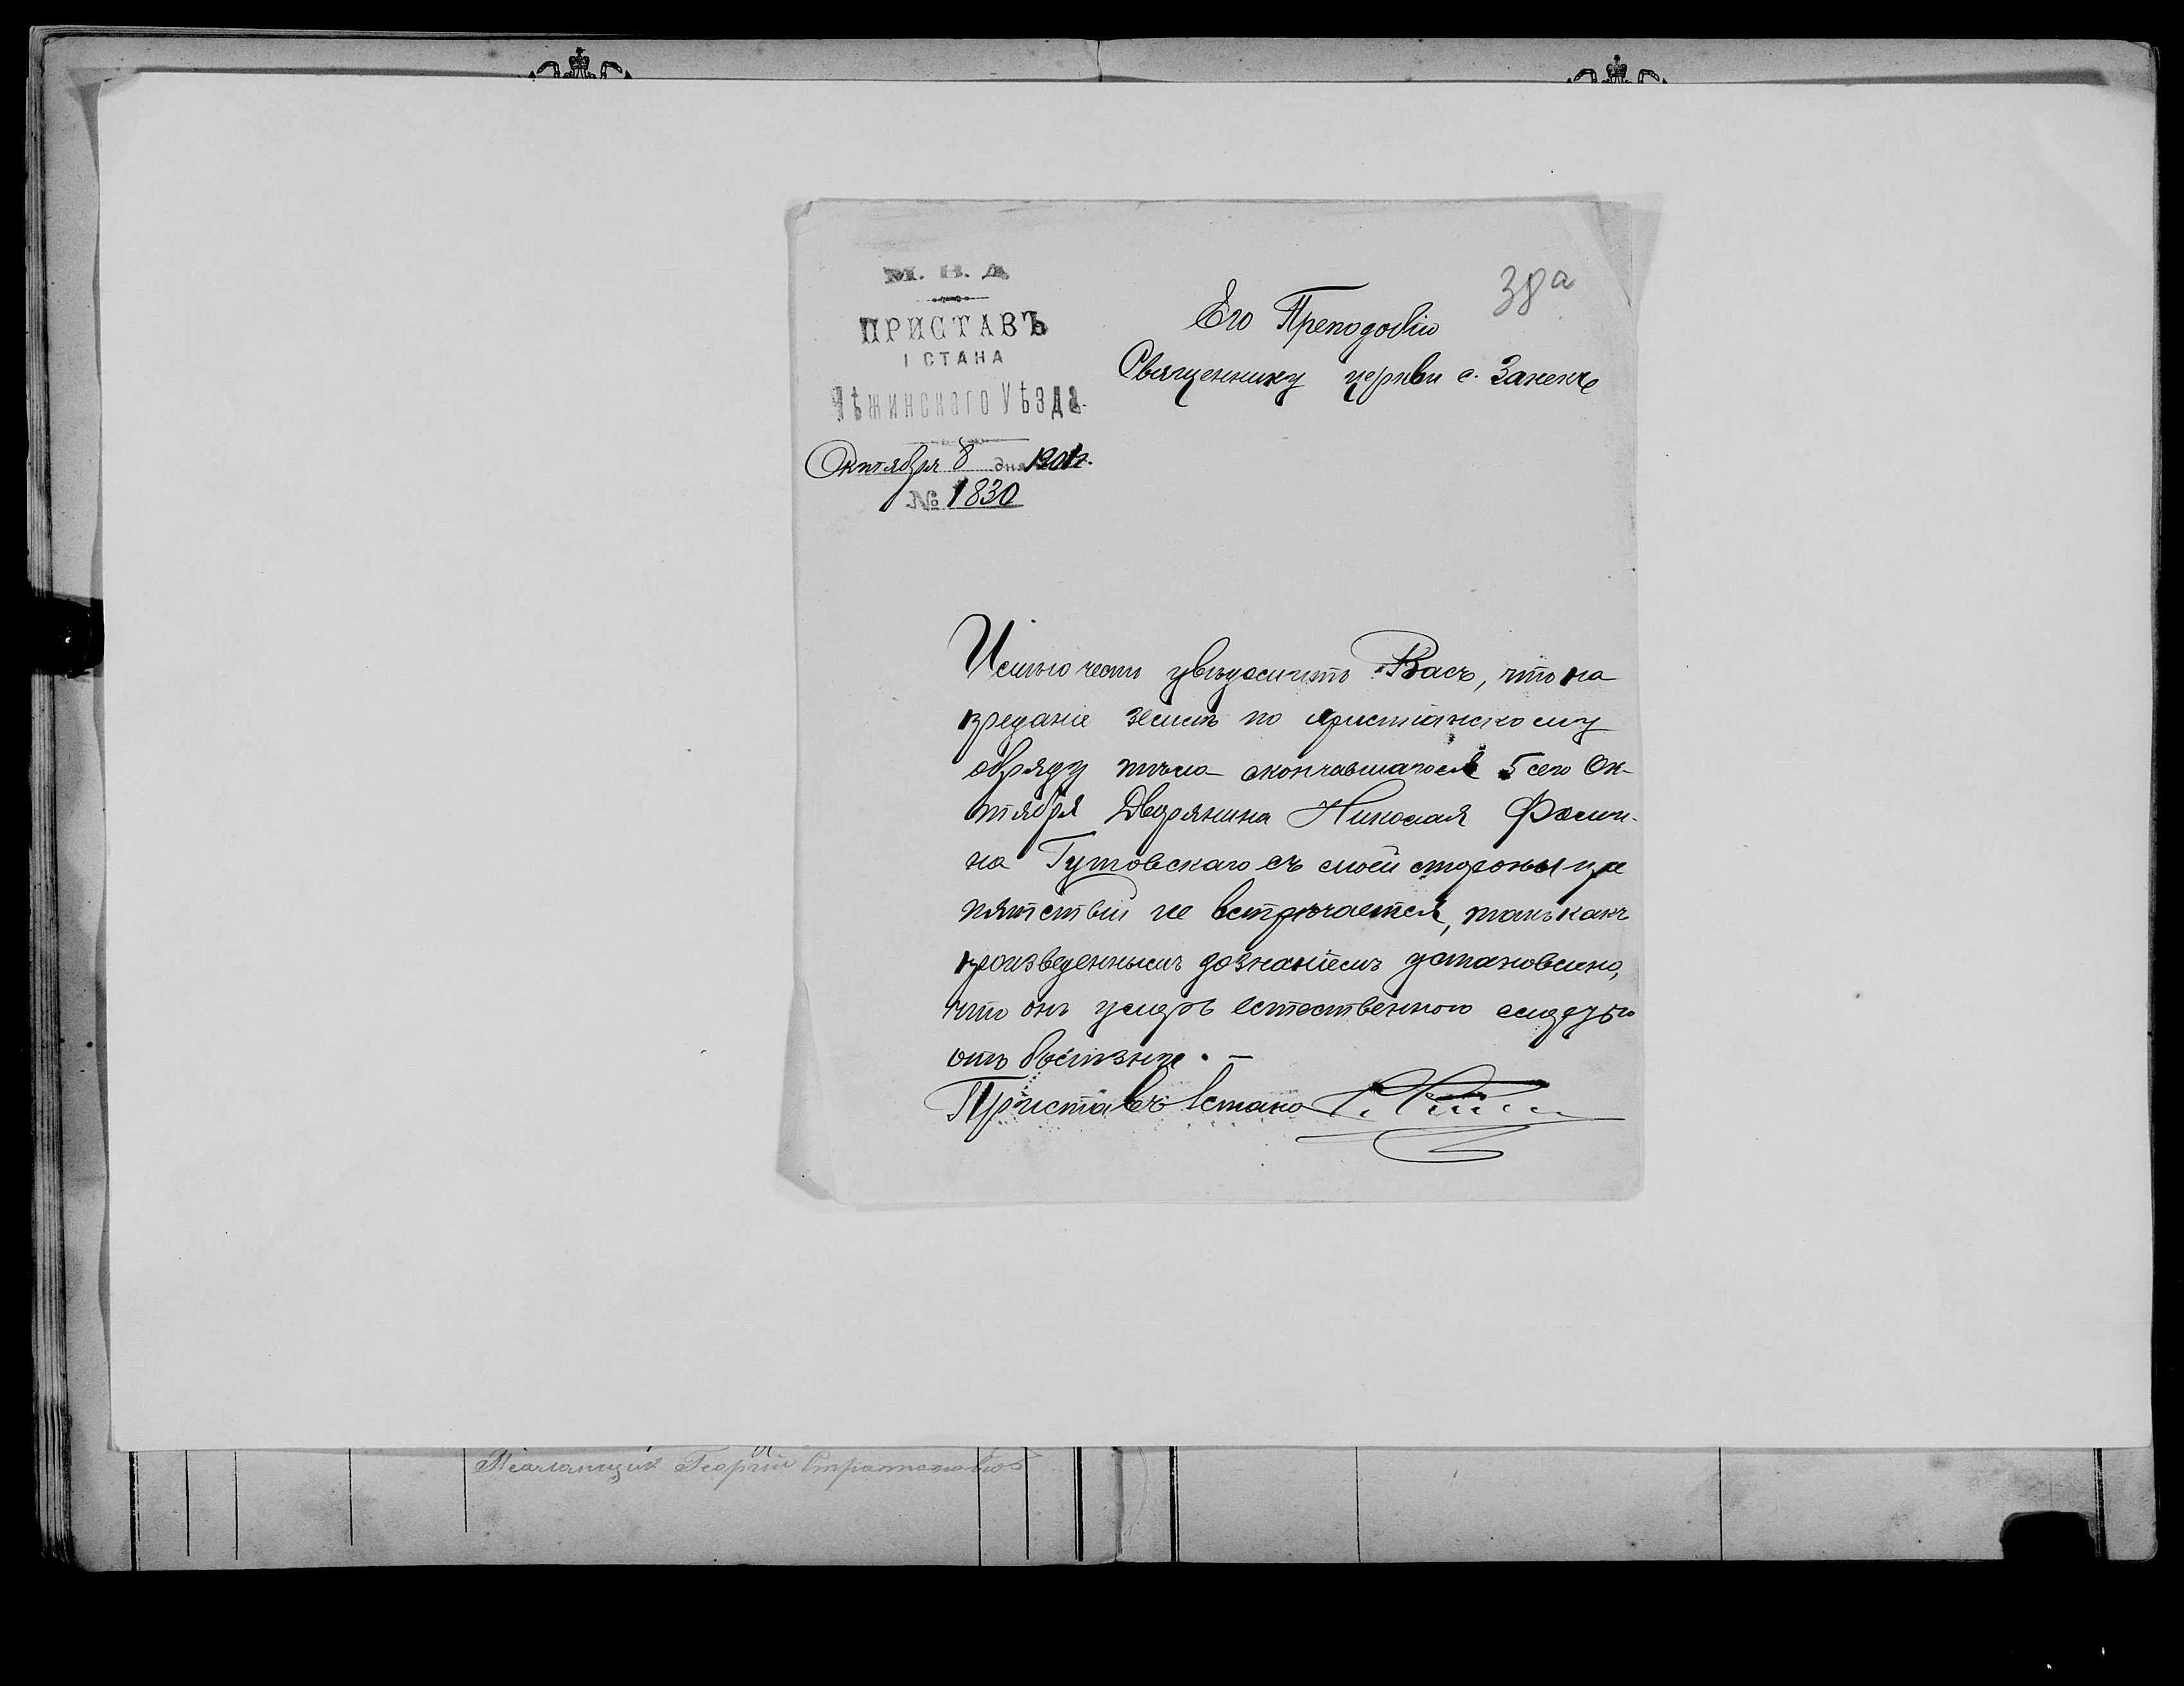 М. В. Д.
ПРИСТАВЪ
1 СТАНА
Нѣжинскаго Уѣзда.
Октября 8 дня 1901 г.
№ 1830
38а
Его Преподобію
Священнику церкви с. Занекъ
Имѣю честь увѣдомить Васъ, что на
преданіе землѣ по христіанскому
обряду тѣла скончавшагося 5 сего Ок-
тября Дворянина Николая Фоми-
на Гутовскаго съ моей стороны пре
пятствій не встрѣчается, такъ какъ
произведеннымъ дознаніемъ установлено,
что онъ умеръ естественною смертью
отъ болѣзни. —
Приставъ 1 стана
Псаломщикъ Георгій